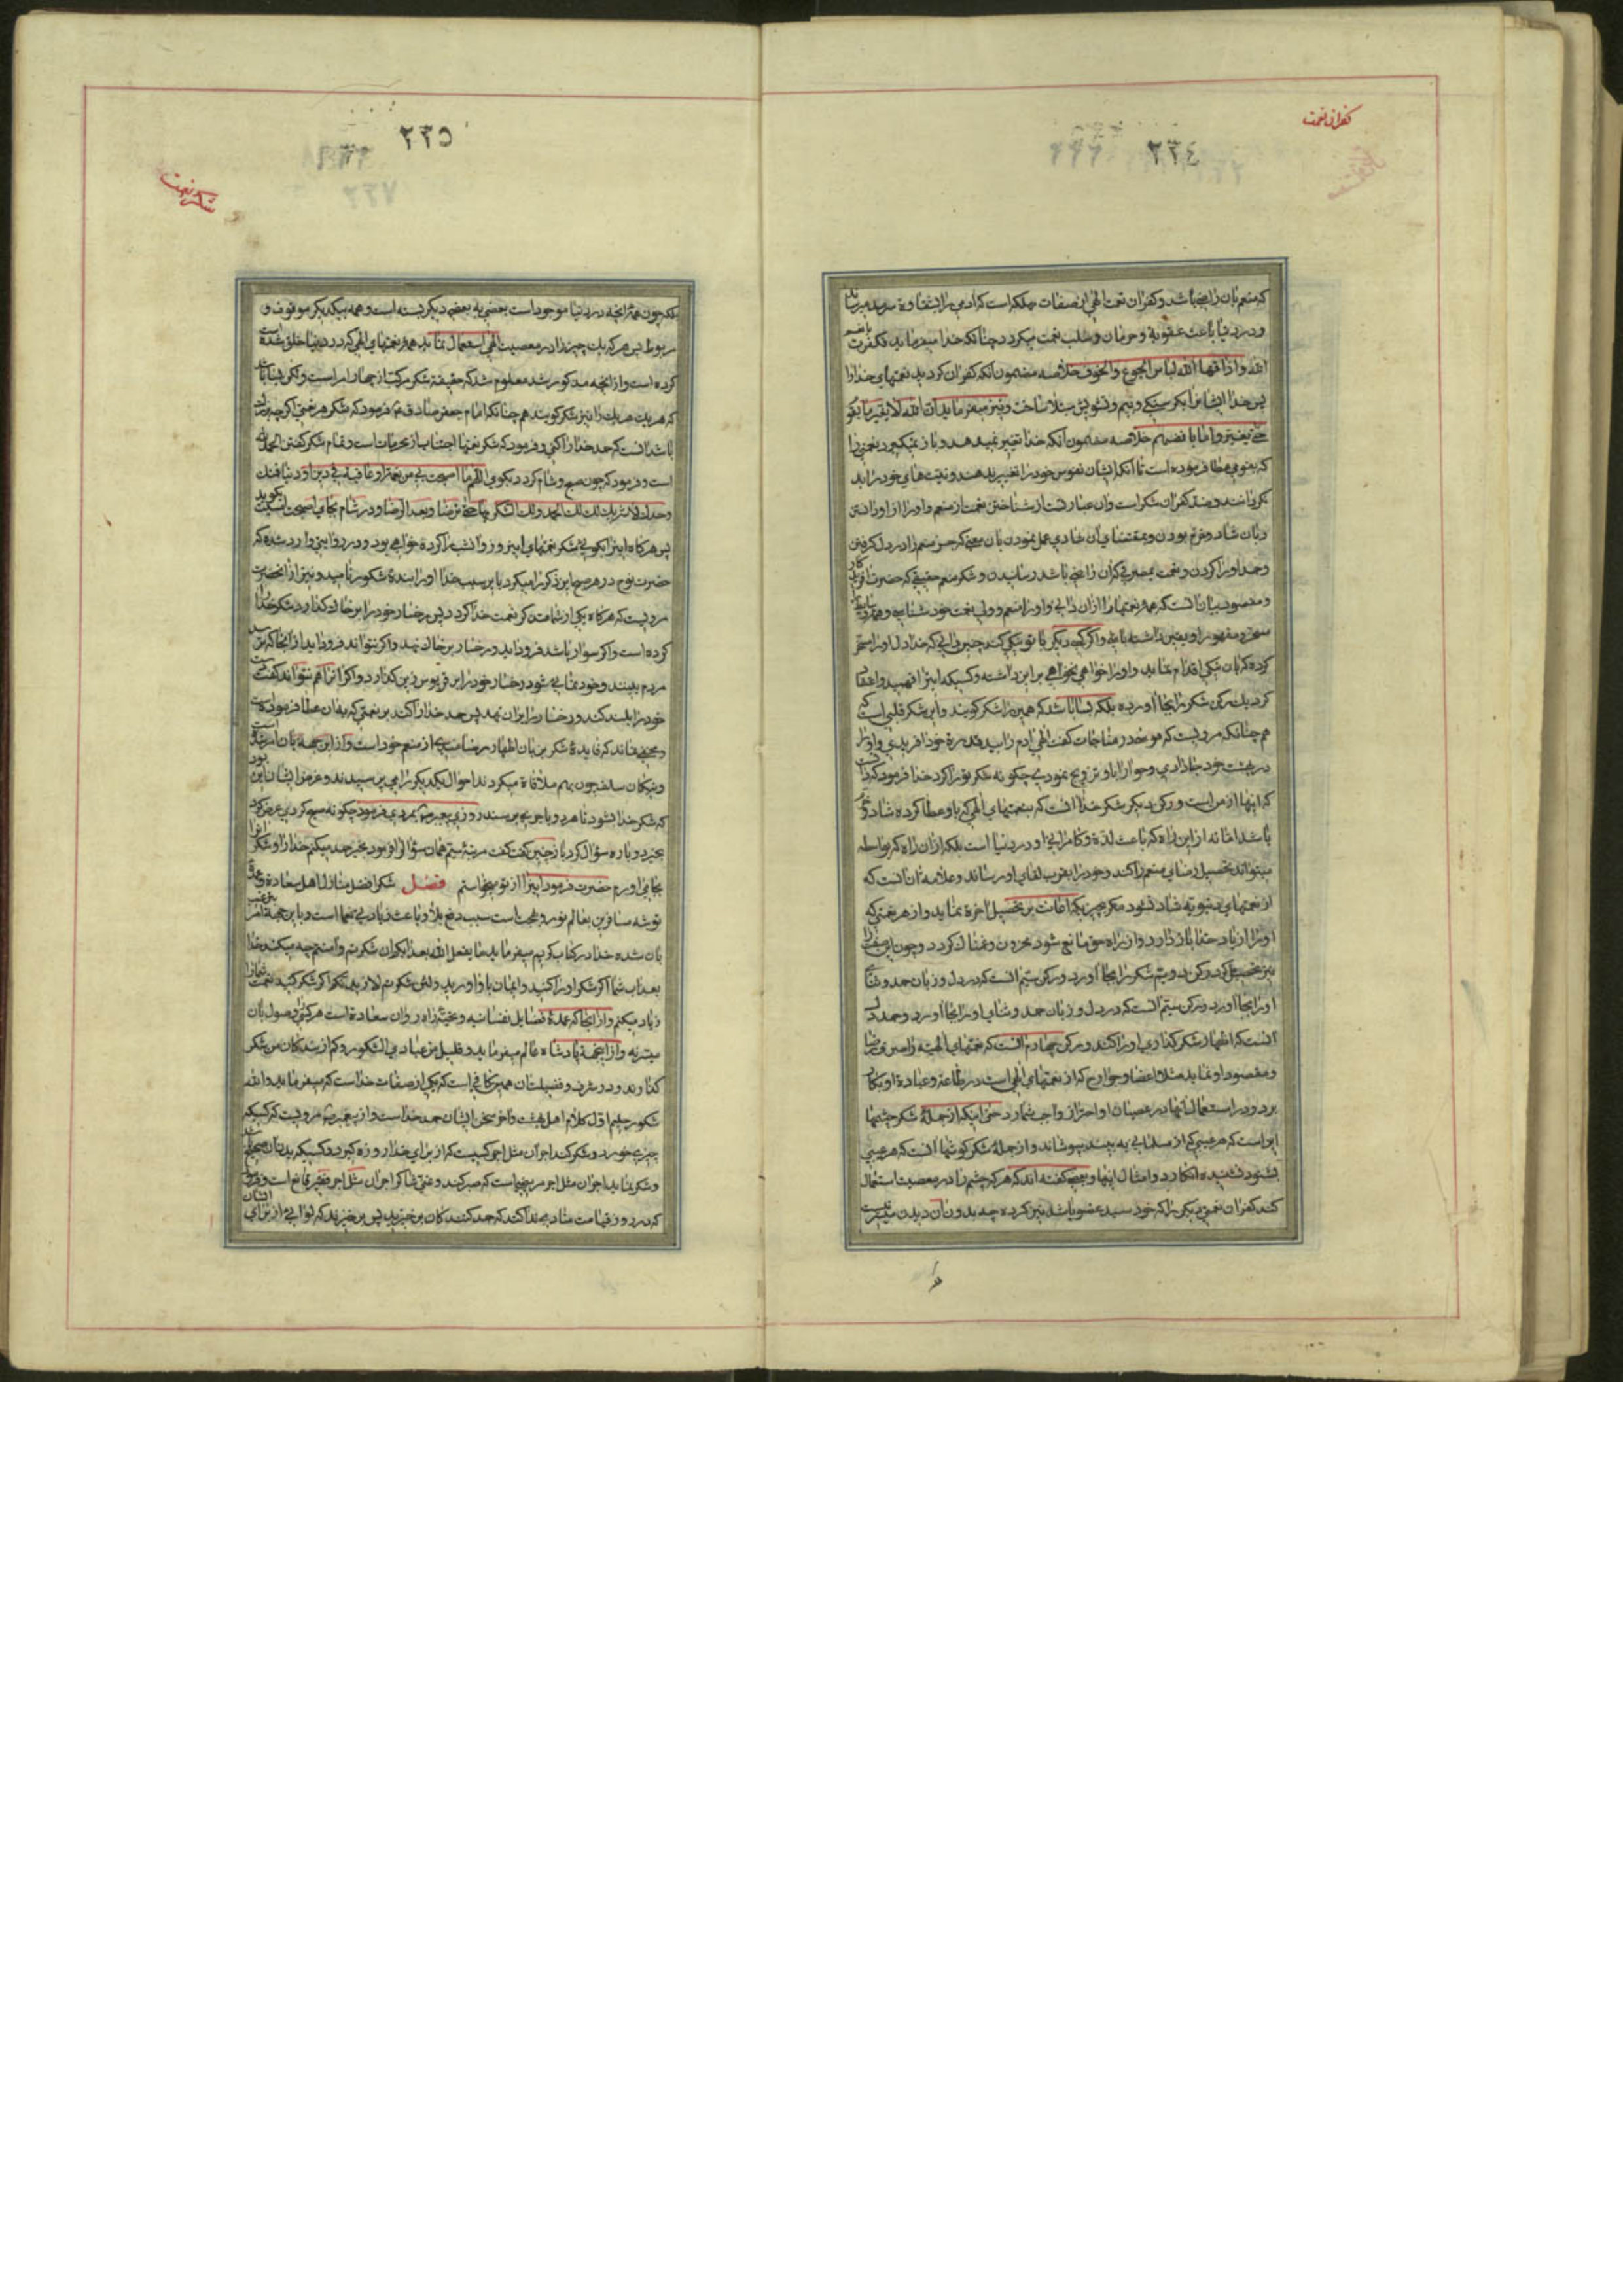 کفران نعمت
٢٣٤
که منعم بان راضی باشد و کفران نعمت الهی از صفات مهلکه است که ادمی را بشقاوة سرمد میرساند
و در دنیا باعث عقوبة و حرمان و سلب نعمت میکردد چنانکه خدا میفرماید فکفرت بانعم
الله واذاقها الله لباس الجوع والخوف خلاصه مضمون انکه کفران کردند نعمتهای خدا را
پس خدا ایشانرا بکرسنکی و بیم و تشویش مبتلا ساخت و نیز میفرماید ان الله لا یغیر ما بقو
حتی یغیروا ما بانفسهم خلاصه مضمون آنکه خدا تغییر نمیدهد و باز نمیکیرد نعمتی را
که بقومی عطا فرموده است تا انکه ایشان نفوس خود را تغییر بدهند و نیتهای خود را بد
و ضد کفران شکر است وان عبارتست از شناختن نعمت از منعم و او را از او دانستن
و بان شاد و خرم بودن و بمقتضای آن شادی عمل نمودن بان معنی که خیر منعم را در دل کرفتن
و حمد او را کردن و نعمت بمصرفی که ان راضی باشد رسانیدن و شکر منعم حقیقی که حضرت
و مقصود بیان انست که همه نعمتها را از ان دانی و او را منعم و ولی نعمت خود شناسی و همه
مسخر و مقهور او یقین داشته باشی و اکر کسی دیکر با تو نیکی کند چنین دانی که خدا دل او را مسخر
کرده که بان نیکی اقدام نماید و او را خواهی نخواهی بر این داشته و کسیکه اینرا فهمید و اعتقا
کرد یک رکن شکر را بجا آورده بلکه بسا باشد که همین را شکر کویند و این شکر قلبی است
هم چنانکه مرویست که موسی در مناجات کفت الهی ادم را بید قدرة خود افریدی و او را
در بهشت خود جا دادی و حوا را باو تزویج نمودی چکونه شکر تو را کرد خدا فرمود که دانست
که اینها از من است و رکن دیکر شکر خدا انست که بنعمتهای الهی که باو عطا کرده شاد و خرم
باشد اما نه از این راه که باعث لذة و کامرانی او در دنیا است بلکه از ان راه که بواسطه
میتواند تحصیل رضای منعم را کند و خود را بقرب لقای او رساند و علامه ان انست که
از نعمتهای دنیویه شاد نشود مکر بچیزیکه اعانت بر تحصیل اخرة نماید و از هر نعمتی که
او را از یاد خدا باز دارد و از راه حق مانع شود محزون و غمناک کردد و چون این صفت را
نیز تحصیل کرد رکن دویم شکر را بجا آورد و رکن سیم انست که در دل و زبان حمد و ثنای
او را بجا آورد و رکن سیم انست که در دل و زبان حمد و ثنای او را بجا آورد و حمد دل
انست که اظهار شکر کذاری او را کند و رکن چهارم انست که نعمتهای الهیه را صرف رضا
و مقصود او نماید مثلا اعضا و جوارح که از نعمتهای الهی است در طاعة و عبادة او بکار
برد و در استعمال آنها در عصیان او احتراز واجب شمارد حتی اینکه از جملۀ شکر چشمها
این است که هر عیبی که از مسلمانی به بیند بپوشاند و از جملۀ شکر کوشها انست که هر عیبی
بشنود نشنیده انکارد و امثال اینها و بعضی کفته اند که هر که چشم را در معصیت استعمال
کند کفران نعمتی دیکر را که خورشید عضو باشد نیز کرده چه بدون آن دیدن میسر نیست
شکر نعمت
٢٣٥
بلکه چون همه انچه در دنیا موجود است بعضی به بعضی دیکر بسته است و همه بیکدیکر موقوف و
مربوط پس هر که یک چیز را در معصیت الهی استعمال نماید همه نعمتهای الهی که در دنیا خلق شده
کرده است و از انچه مذکور شد معلوم شد که حقیقة شکر مرکب از چهار امر است ولکن بسا باشد
که هر یک هر یک را نیز شکر کویند هم چنانکه امام جعفر صادق ع فرمود که شکر هر نعمتی اکر چه بزرك
باشد انست که حمد خدا را کنی و فرمود که شکر نعمتها اجتناب از محرمات است و تمام شکر کفتن الحمد لله
است و فرمود که چون صبح و شام کردد بکوی اللهم ما اصبحت بی من نعمة او عافیة فی دین او دنیا فمنك
وحدك لا شریك لك لك الحمد ولك الشکر بها حتی ترضا و بعد الرضا و در شام بجای اصبحت امسیت بکوید
پس هرکاه اینرا بکوئی شکر نعمتهای اینروز و انشب را کرده خواهی بود و در روایتی وارد شده که
حضرت نوح در هر صباح این ذکر را میکرد باین سبب خدا او را بنده شکور نامید و نیز از انحضرت
مرویست که هرکاه یکی از شما متذکر نعمت خدا کردد پس رخسار خود را بر خاک کذارد و شکر خدا را
کرده است و اکر سوار باشد فرود آید و رخسار بر خاک نهد و اکر نتواند فرود اید از انجا که
مردم ببینند و خودنمائی شود رخسار خود را بر قربوس زین کذارد و اکر انرا هم نتواند کفت
خود را بلند کند و رخسار را بر ان نهد پس حمد خدا را کند بر نعمتی که بفان عطا فرموده است
و مخفی نماند که فایدۀ شکر بزبان اظهار رضامندی از منعم خود است و از این جهة بان امر شده است
و نیکان سلف چون بهم ملاقاة میکردند احوال یکدیکر را می پرسیدند و غرض ایشان این بود
که شکر خدا بشود تا هر دو باجر برسند روزی پیغمبر ص بمردی فرمود چکونه صبح کردی عرض کرد
بخیر دوباره سؤال کرد باز چنین کفت مرتبۀ سیم همان سؤال را فرمود بخیر حمد میکنم خدا را و شکر انرا
بجا می اورم حضرت فرمود اینرا از تو میخواستم فصل شکر افضل منازل اهل سعادة و عمدۀ
توشه مسافرین بعالم نور و بهجت است سبب دفع بلا و باعث زیادتی نعما است و باین جهة امر و ترغیب
بان شده خدا در کتاب کریم میفرماید ما یفعل الله بعذابکم ان شکرتم وآمنتم چه میکند خدا
بعذاب شما اکر شکر او را کنید و ایمان باو اورید و لئن شکرتم لازیدنکم اکر شکر کنید نعمت شما را
زیاد میکنم و از انجا که عمدۀ فضایل نفسانیه و نخبۀ زاه روان سعادة است هرکسی را وصول بان
میسر نه و از اینجهة پادشاه عالم میفرماید و قلیل من عبادی الشکور و کم از بندکان من شکر
کذارند و در شرف و فضیلت ان همین کافی است که یکی از صفات خدا است که میفرماید والله
شکور حلیم اول کلام اهل بهشت و اخر سخن ایشان حمد خدا است و از پیغمبر ص مرویست که کسیکه
چیزی خورد و شکر کند اجر ان مثل اجر کسیست که از برای خدا روزه کیرد و کسیکه بدنان صحیح باشد
و شکر نماید اجر ان مثل اجر مریضیست که صبر کند و غنی شاکر اجر ان مثل اجر فقیر قانع است و فرمود
که در روز قیامت منادی ندا کند که حمد کنندکان برخیزید پس برخیزند که لوائی از برای ایشان